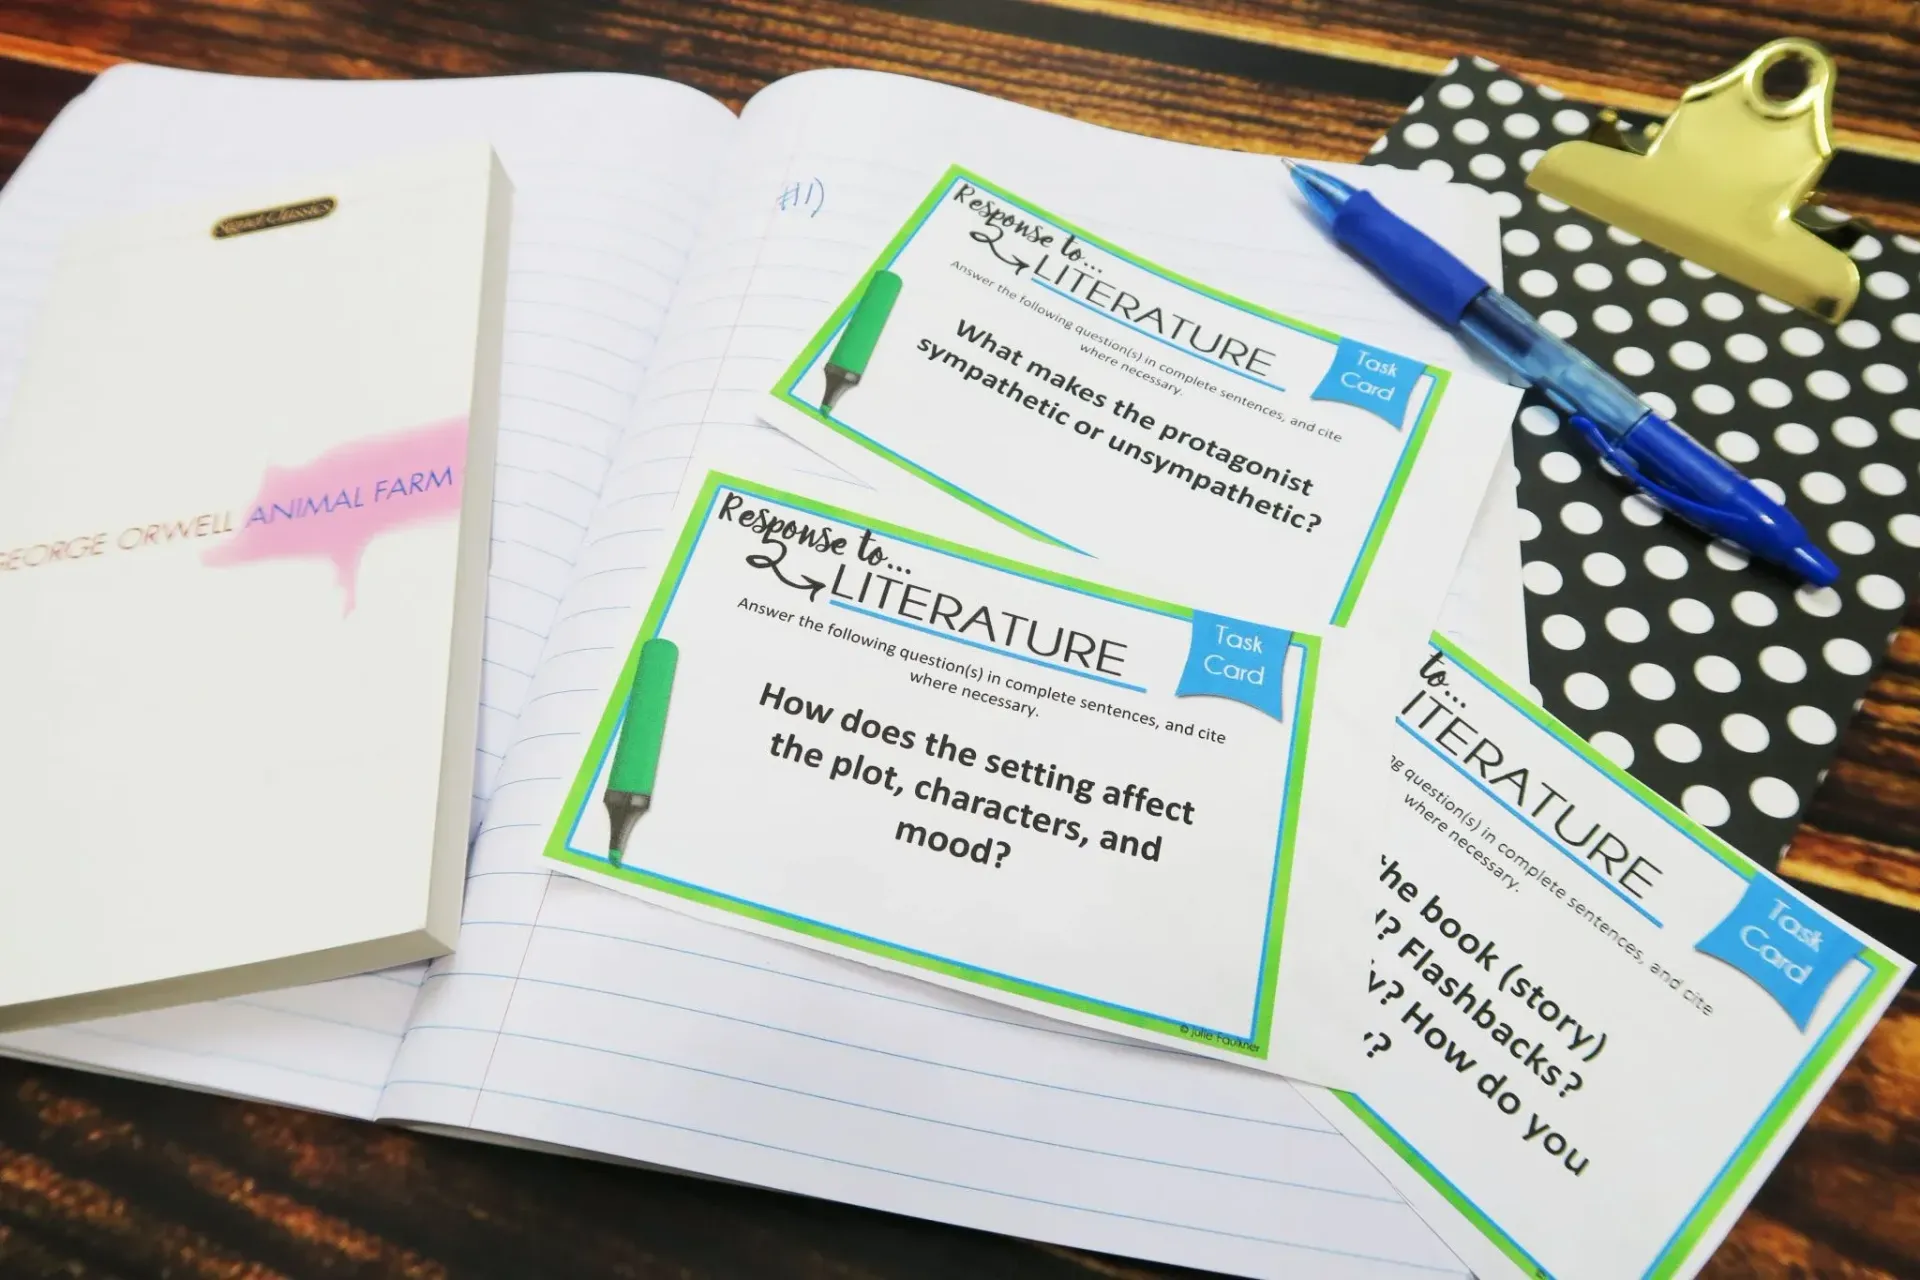 Signet Classics
GEORGE ORWELL ANIMAL FARM
#11)
Response to...
LITERATURE
Answer the following question(s) in complete sentences, and cite
where necessary.
Task
Card
What makes the protagonist
sympathetic or unsympathetic?
Response to...
LITERATURE
Answer the following question(s) in complete sentences, and cite
where necessary.
Task
Card
How does the setting affect
the plot, characters, and
mood?
© Julie Faulkner
to...
ITERATURE
question(s) in complete sentences, and cite
where necessary.
Task
Card
the book (story)
? Flashbacks?
y? How do you
?